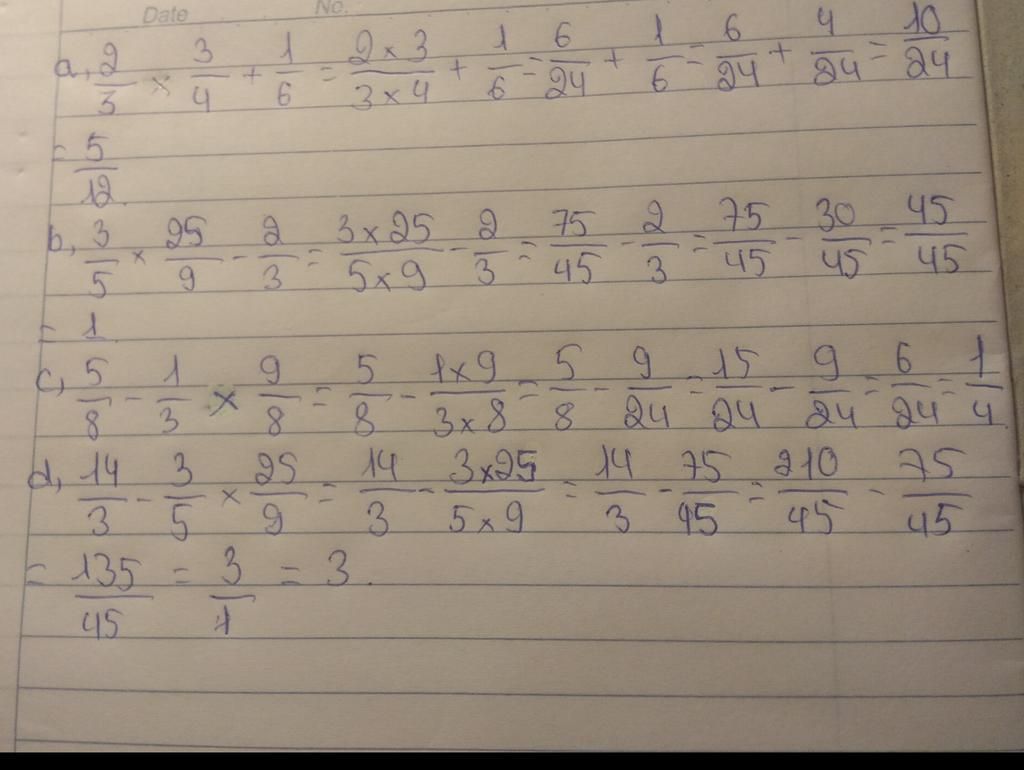 Date No.
a, 2/3 × 3/4 + 1/6 = 2×3/3×4 + 1/6 = 6/24 + 1/6 = 6/24 + 4/24 = 10/24
= 5/12.
b, 3/5 × 25/9 - 2/3 = 3×25/5×9 - 2/3 = 75/45 - 2/3 = 75/45 - 30/45 = 45/45
= 1.
c, 5/8 - 1/3 × 9/8 = 5/8 - 1×9/3×8 = 5/8 - 9/24 = 15/24 - 9/24 = 6/24 = 1/4.
d, 14/3 - 3/5 × 25/9 = 14/3 - 3×25/5×9 = 14/3 - 75/45 = 210/45 - 75/45
= 135/45 = 3/1 = 3.